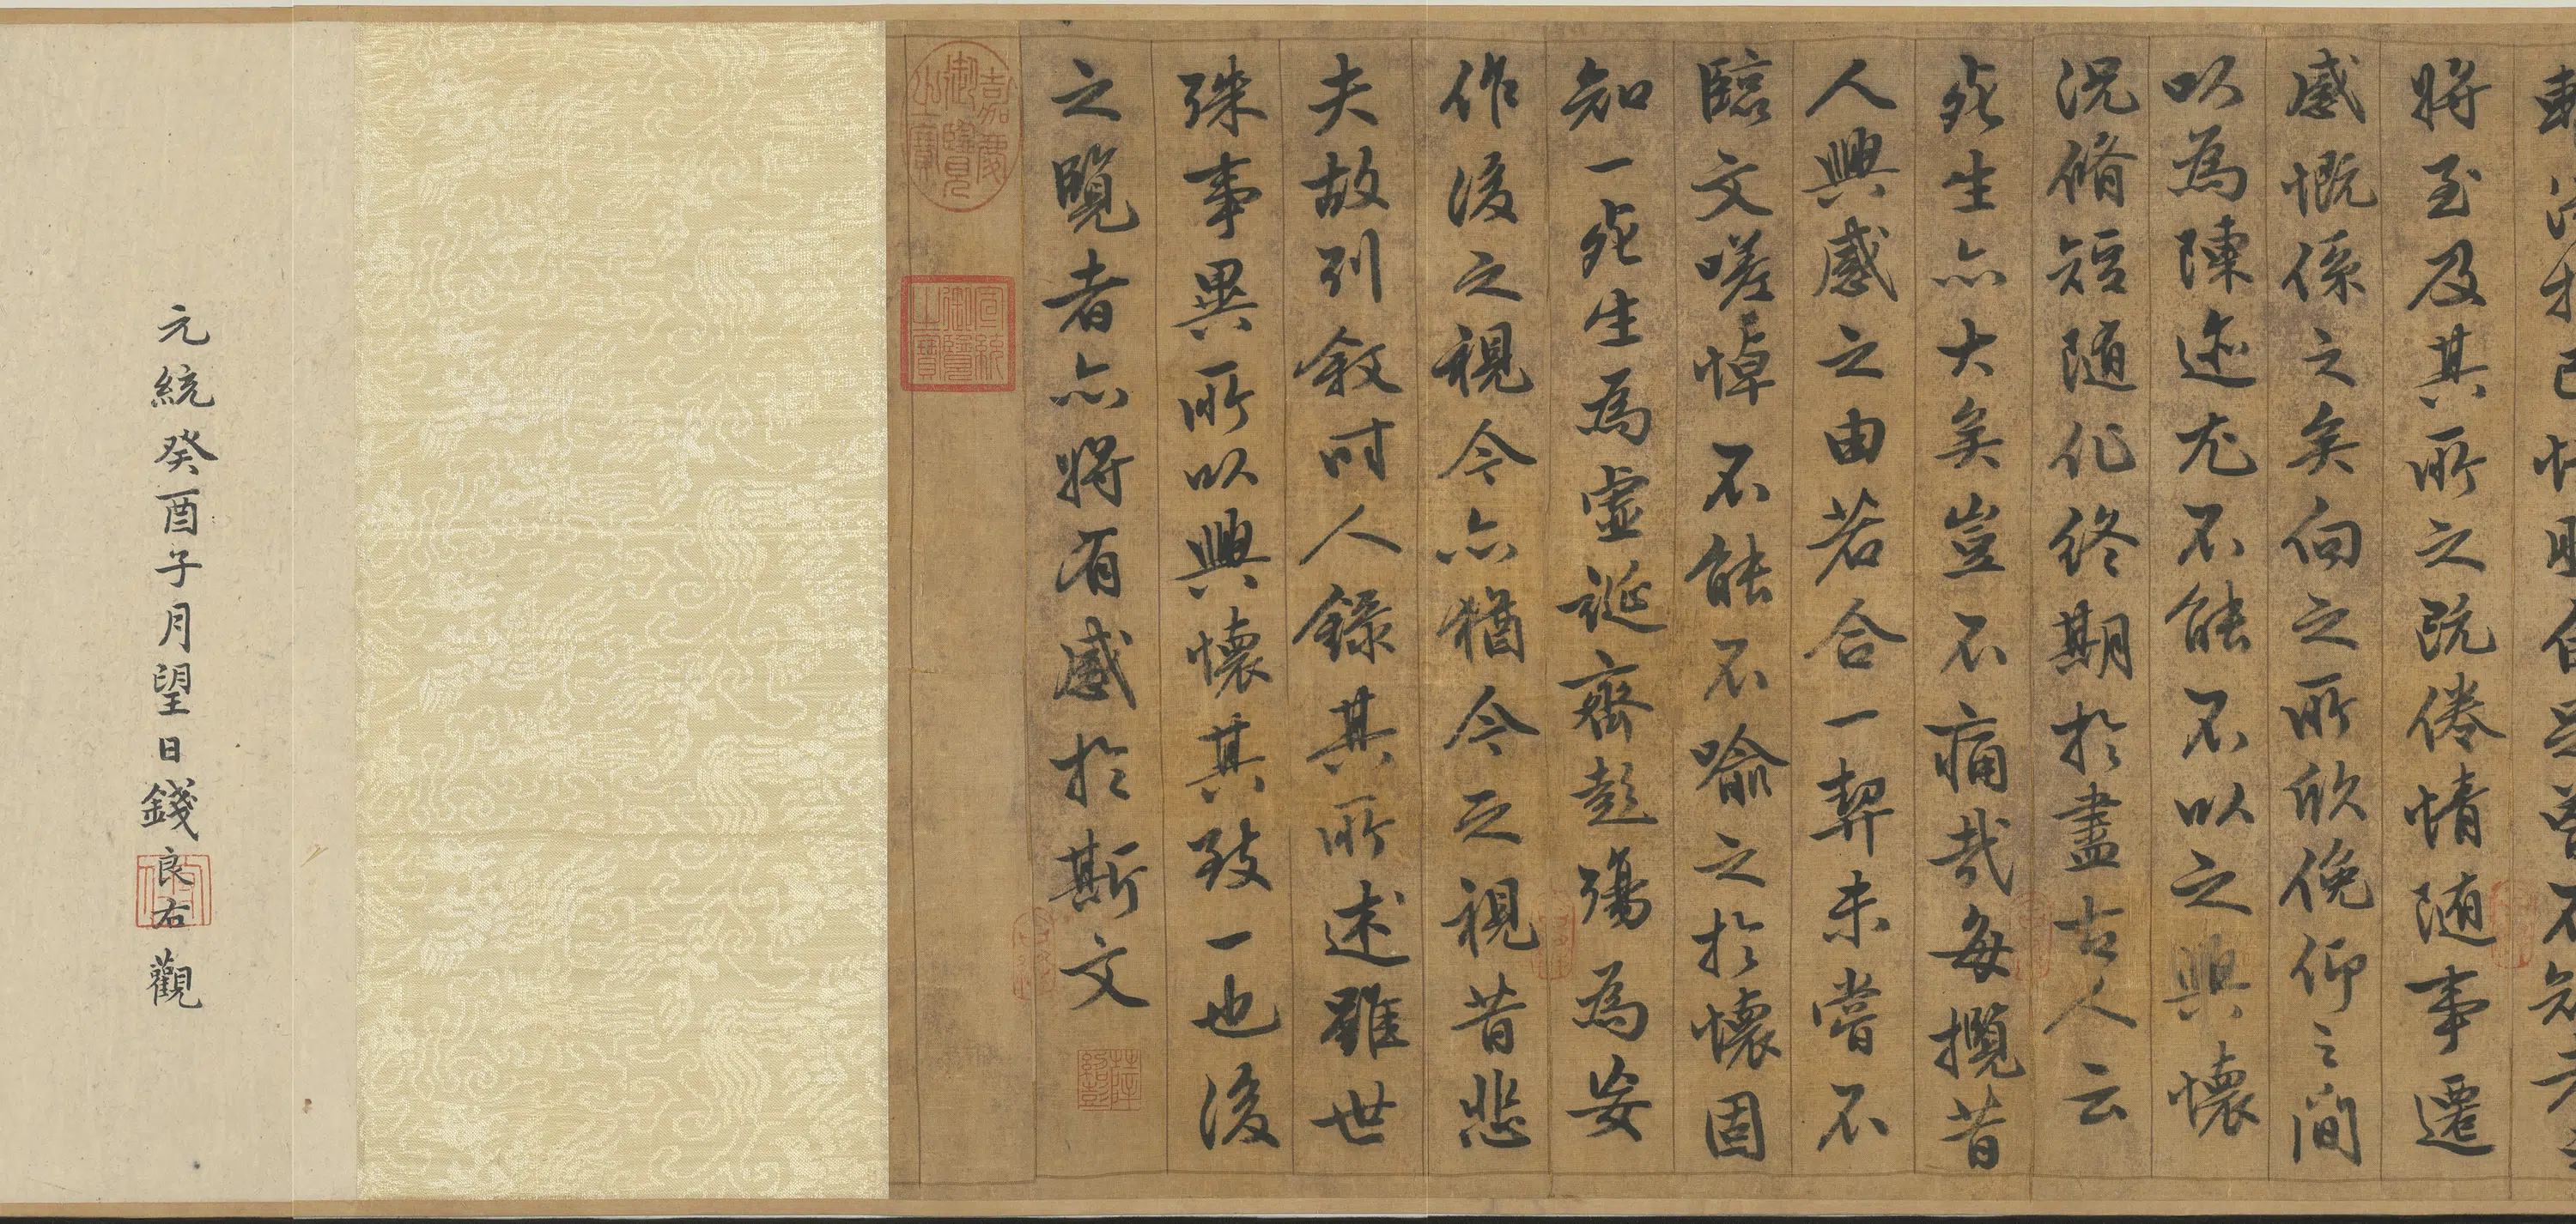 將至及其所之既倦情隨事遷
感慨係之矣向之所欣俛仰之間
以為陳迹尤不能不以之興懷
況脩短隨化終期於盡古人云
死生亦大矣豈不痛哉每攬昔
人興感之由若合一契未嘗不
臨文嗟悼不能不喻之於懷固
知一死生為虛誕齊彭殤為妄
作後之視今亦猶今之視昔悲
夫故列敘時人錄其所述雖世
殊事異所以興懷其致一也後
之覽者亦將有感於斯文
薛紹彭
嘉慶御覽之寶
宣統御覽之寶
元統癸酉子月望日錢良右觀